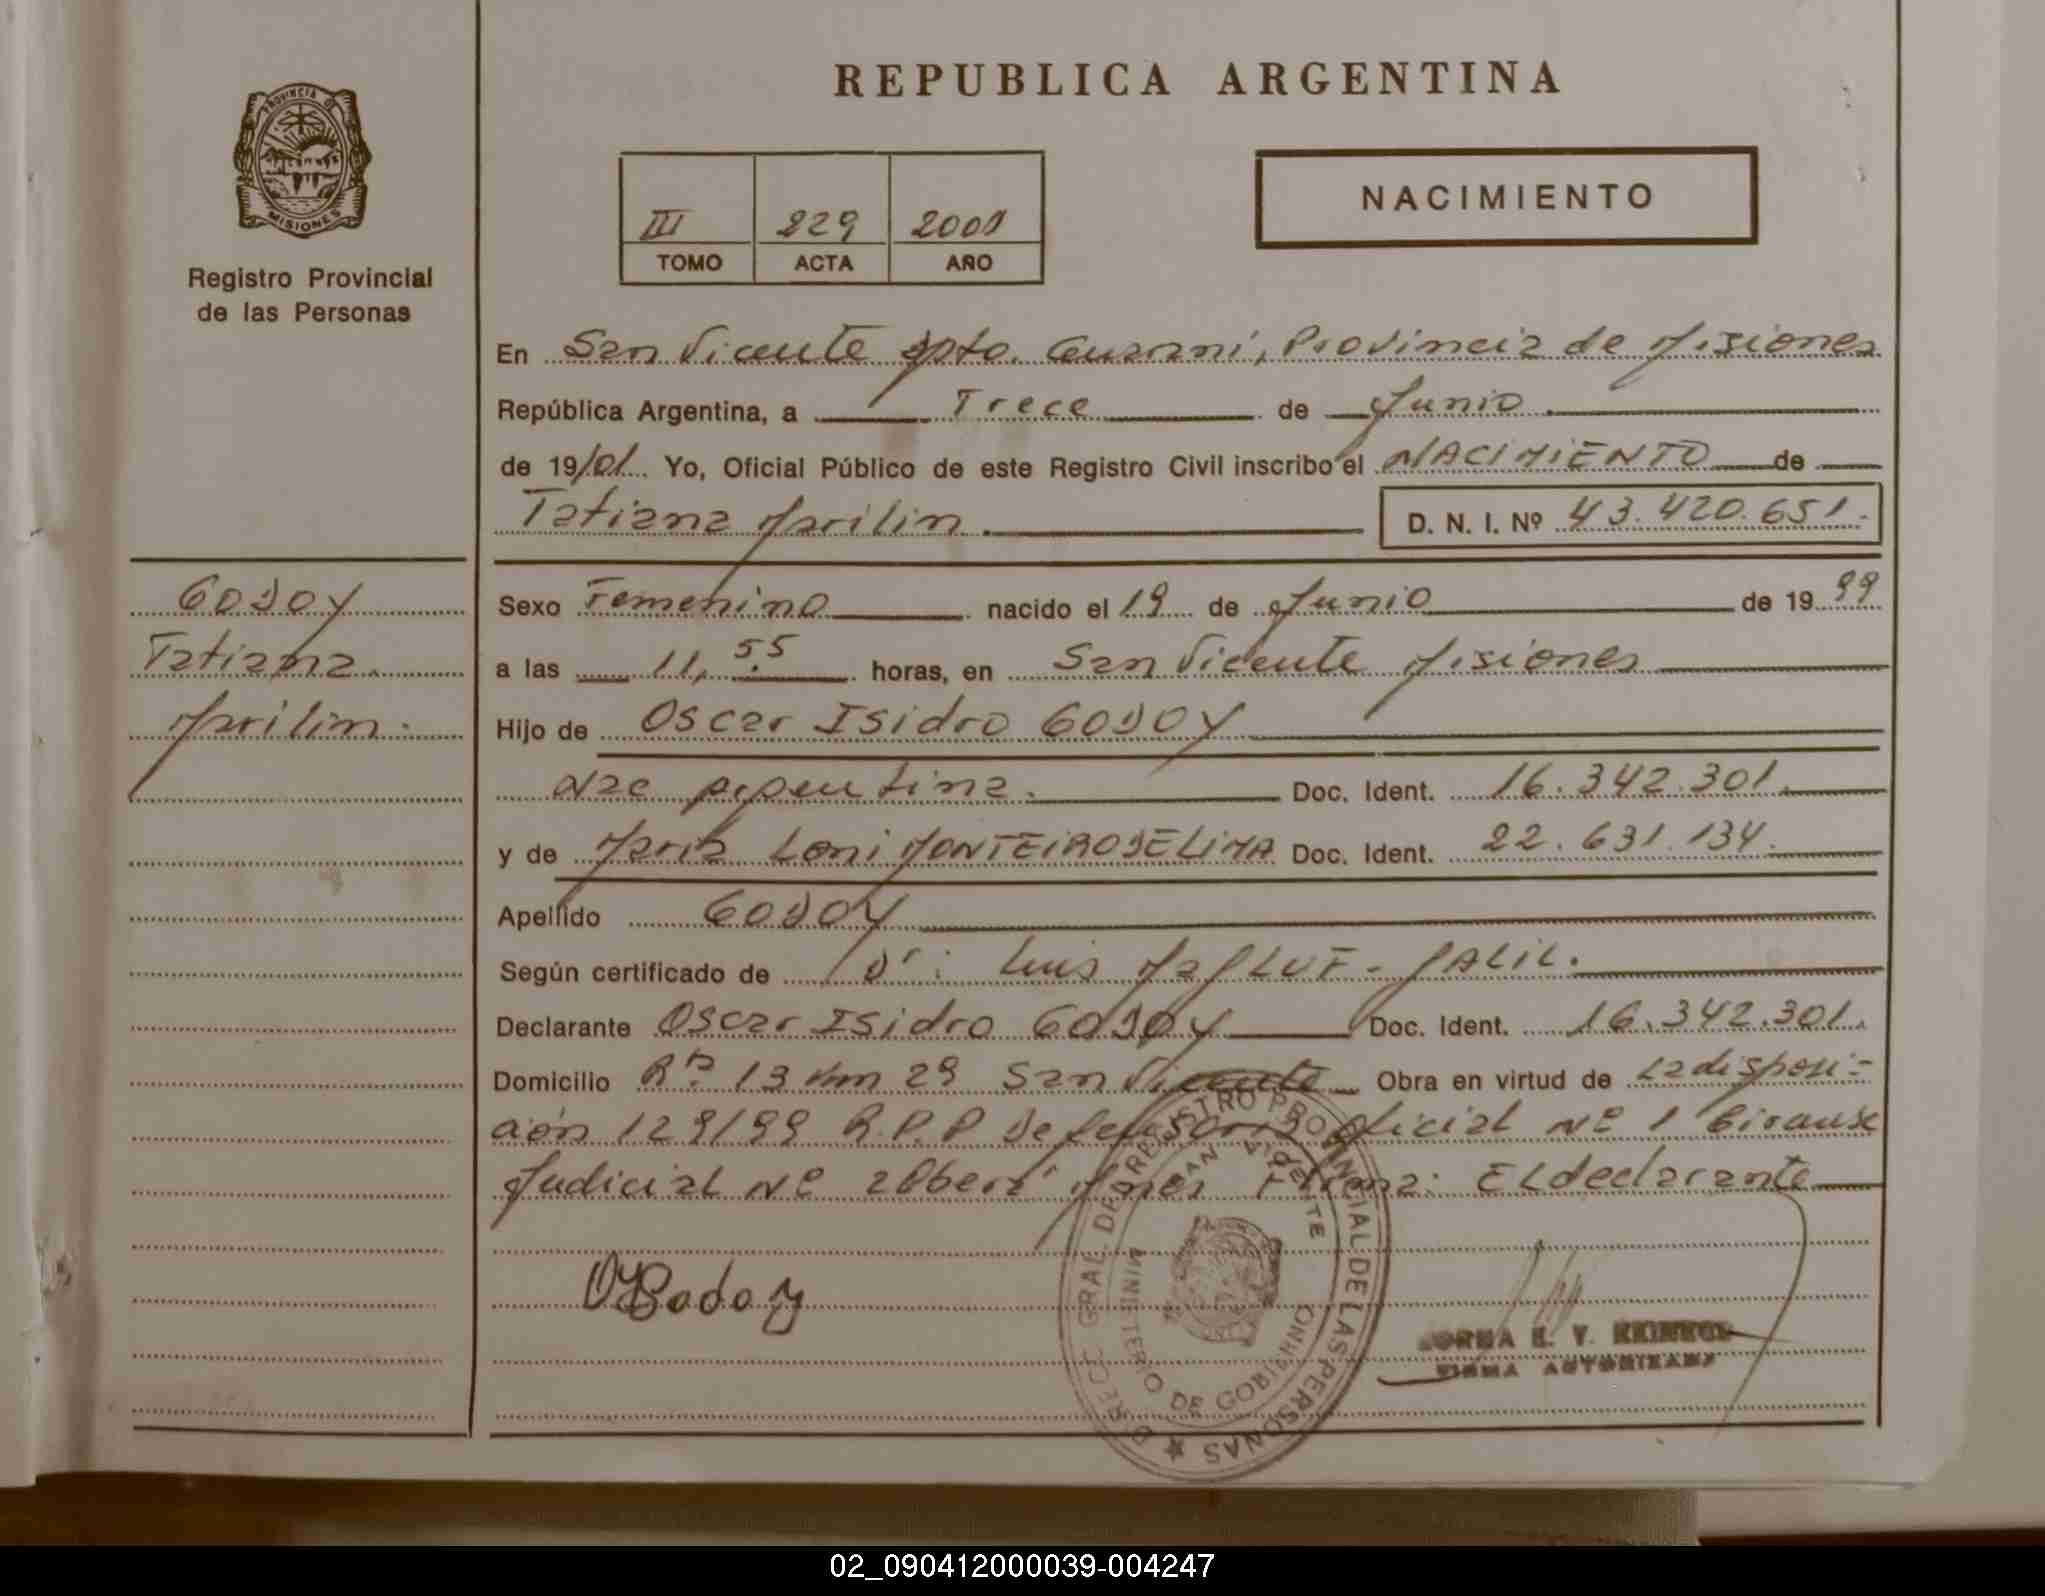 PROVINCIA D
MISIONES
Registro Provincial
de las Personas
REPUBLICA ARGENTINA
III 229 2001
TOMO ACTA AÑO
NACIMIENTO
En San Vicente Dpto. Guaraní, Provincia de Misiones
República Argentina, a Trece de Junio
de 19/01 Yo, Oficial Público de este Registro Civil inscribo el NACIMIENTO de
Tatiana Marilin D. N. I. Nº 43.420.651.
GODOY
Tatiana
Marilin.
Sexo Femenino nacido el 19 de Junio de 19 99
a las 11,55 horas, en San Vicente Misiones
Hijo de Oscar Isidro GODOY
Nac Argentina. Doc. Ident. 16.342.301.
y de Maria Loni MONTEIRO DE LIMA Doc. Ident. 22.631.134.
Apellido GODOY
Según certificado de Dr: Luis JALIL.
Declarante Oscar Isidro GODOY Doc. Ident. 16.342.301.
Domicilio Rta. 13 km 29 San Vicente Obra en virtud de La disposi-
ción 129/99 R.P.P Defensoria oficial Nº 1
Judicial Nº Oberá Mnes Firma: El declarante
OIGodoy
DIRECC GRAL DE REGISTRO PROVINCIAL DE LAS PERSONAS
MINISTERIO DE GOBIERNO
SAN VICENTE
E. V.
FIRMA AUTORIZADA
02_090412000039-004247